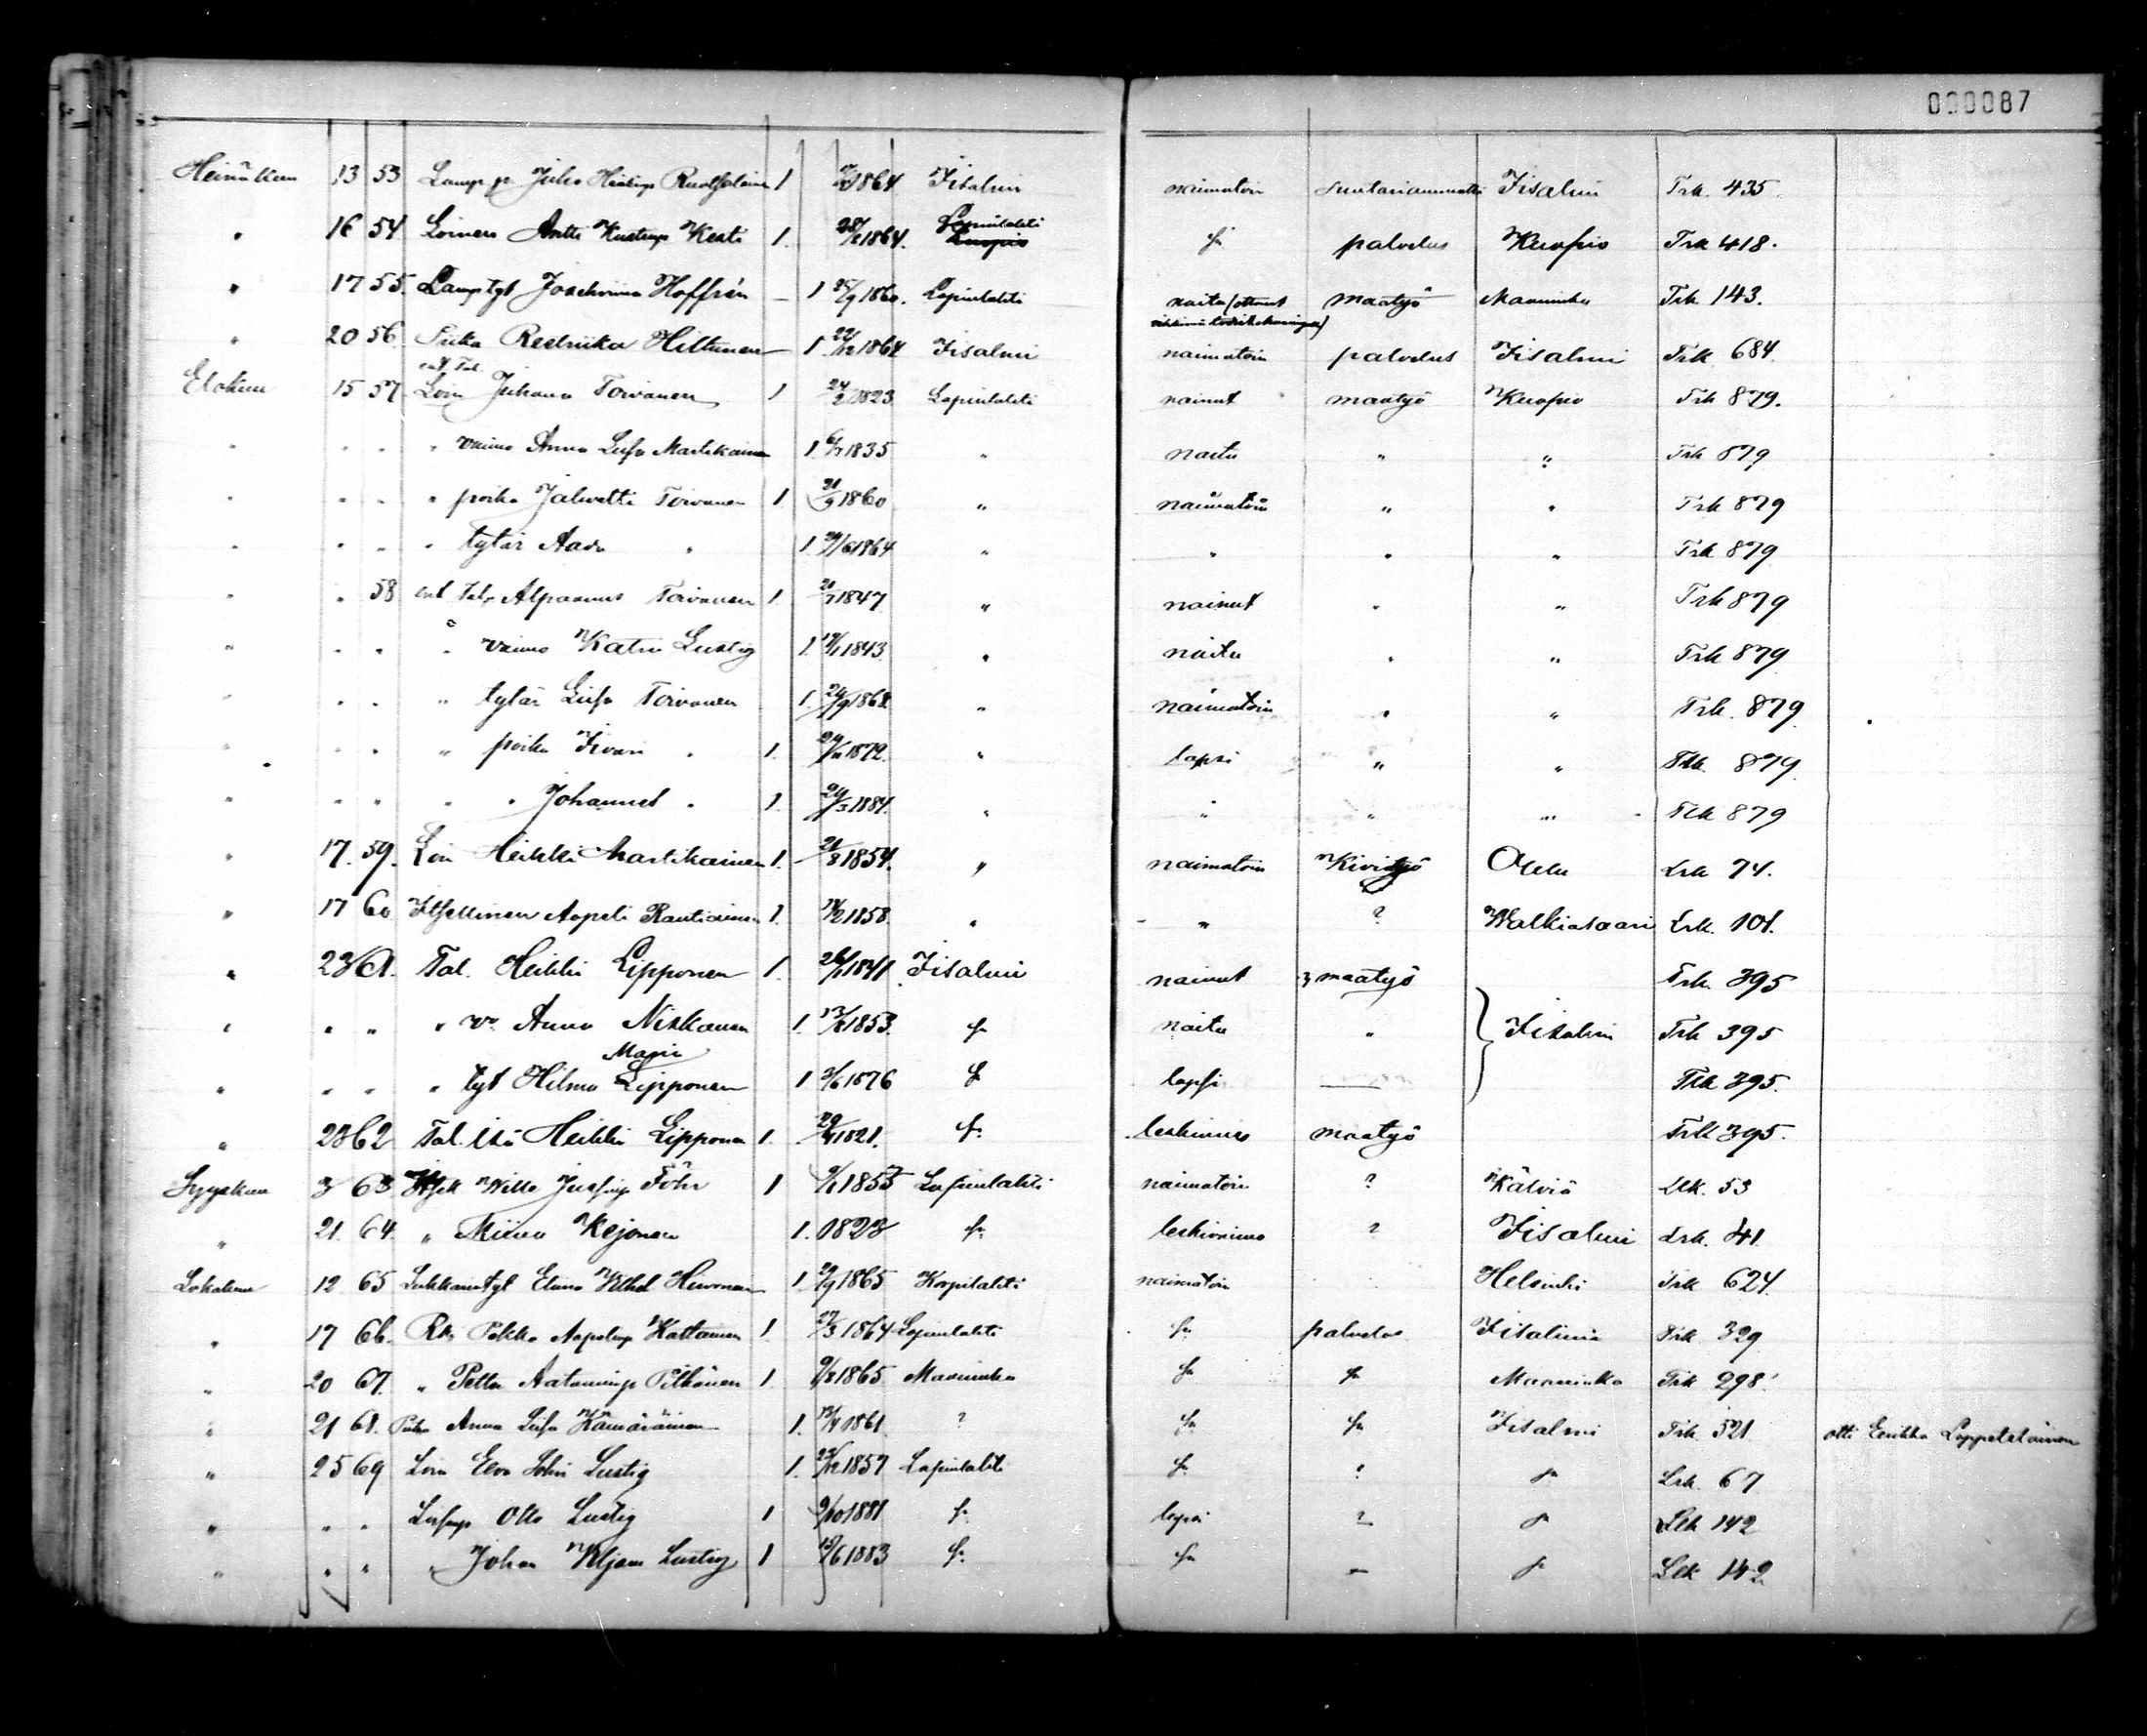 000087
Heinäkuu 13 53 Lamp. p. Juho Heikinp Ruotsalainen 1 1864 Iisalmi naimatoin Suutariammatti Iisalmi Trk. 435
" 16 54 Loinen Antti Kustinp Kesti 1. 28/2 1864. Lapinlahti Kuopio sr palvelus Kuopio Trk 418.
" 17 55. Lamp tyt Josehviina Hoffrén – 1 25/9 1860. Lapinlahti naitu (ottanut maatyö Maaninka Trk 143.
" 20 56 Sika Reetriika Hiltunen 1 22/12 1864 Iisalmi naimatoin palvelus Iisalmi Trk 684.
ent. Tal.
Elokuu 15 57 Loin Juhana Toivanen 1 24/2 1823 Lapinlahti nainut maatyö Kuopio Trk 879.
" " " " vaimo Anna Liisa Martikainen 1 6/7 1835 " naitu " " Trk 879
" " " " poika Jahvetti Toivanen 1 21/9 1860 " naimatoin " " Trk 879
" " " " tytär Aada " 1 29/6 1864 " " " " Trk 879
" " 58 ent Tal. Alpaanus Toivanen 1 21/7 1847 " nainut " " Trk 879
" " " " vaimo Katri Lustig 1. 17/1 1843 " naitu " " Trk 879
" " " " tytär Liisa Toivanen 1. 24/9 1868 " naimatoin " " Trk. 879
" " " " poika Iivari " 1. 29/11 1872. " lapsi " " Trk. 879
" " " " " Johannes " 1. 29/3 1884. " " " " Trk 879
" 17. 59. Loin Heikki Martikainen 1. 21/8 1854. " naimatoin Kivityö Oulu Lrk 74.
" 17 60 Itsellinen Aapeli Rautiainen 1. 14/2 1858. " " ? Walkiasaari Lrk. 101.
" 23 61. Tal. Heikki Lipponen 1. 26/1 1841 Iisalmi nainut maatyö Trk. 395
" " " " vo. Anna Niskanen 1. 13/8 1853. sr naitu " } Iisalmi Trk 395
Maria
" " " " tyt Hilma Lipponen 1 3/6 1876 sr lapsi — Trk 395.
" 23 62 Tal. isä Heikki Lipponen 1. 29/4 1821. sr leskimies maatyö Trk 395.
Syyskuu 3 63 Itsell Wille Jusinp Föhr 1 1853 Lapinlahti naimatoin ? Kälviä Llk. 53
" 21. 64. " Miina Kejonen 1. 1823 sr leskivaimo ? Iisalmi Lrk. 41.
Lokakuu 12 65 Lukkarintyt Elina Wilhel Hirvonen 1 29/9 1865 Korpilahti naimatoin Helsinki Trk 624.
" 17 66. Rki Pekka Aapelinp Kattainen 1. 27/3 1864 Lapinlahti sr palvelus Iisalmi Trk 329
" 20 67. " Petter Aataminp Pitkänen 1. 9/8 1865 Maaninka sr sr Maaninka Trk 298.
" 21 68. Piika Anna Liisa Kämäräinen 1. 13/4 1861. ? sr sr Iisalmi Trk 521 otti Eerikka Leppeteläinen
" 25 69 Loin Eeva Sohvi Lustig 1. 23/12 1857 Lapinlahti sr ? sr Lrk. 67
" " " Otto Lustig 1 9/10 1881 sr lapsi ? sr Llk 142
" " " " Johan Wiljam Lustig 1 19/6 1883 sr sr – sr Llk 142